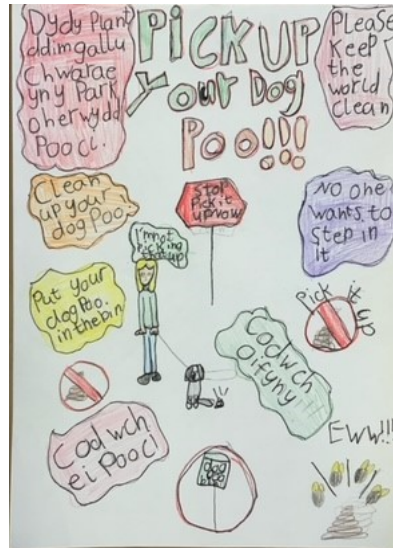 Dydy Plant
ddim gallu
Chwarae
yny Park
oherwydd
Poo Ci.
PiCK UP
Your Dog
Poo!!!
PLeaSe
Keep
the
world
Clean
Clean
up your
dog Poo
Stop
Pick it
up now
No one
wants to
Step in
it
I'm not
Picking
that up
Put your
dog Poo.
in the bin
Pick it up
Codwch
Oifyny!!!
Codwch
ei Poo Ci
EWW!!!
dog